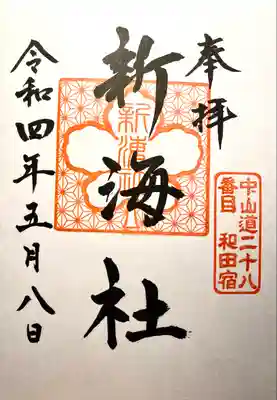 奉拝
中山道二十八
番目 和田宿
新海社
新海社
令和四年五月八日